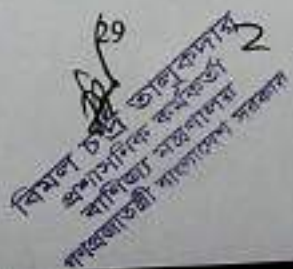 29
2
বিমল চন্দ্র তালুকদার
প্রশাসনিক কর্মকর্তা
বাণিজ্য মন্ত্রণালয়
গণপ্রজাতন্ত্রী বাংলাদেশ সরকার